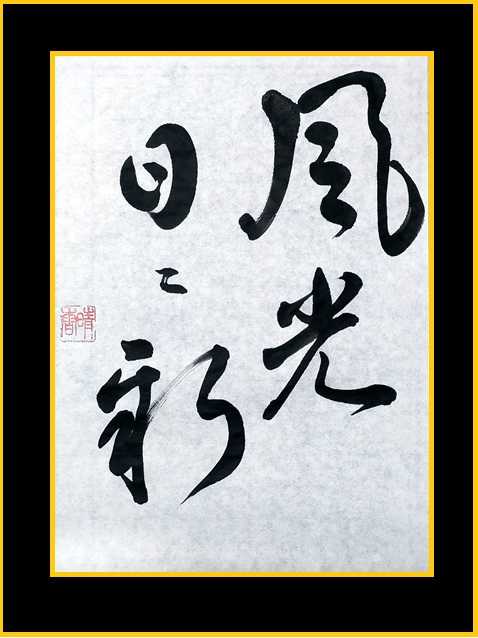 風光
日〻新